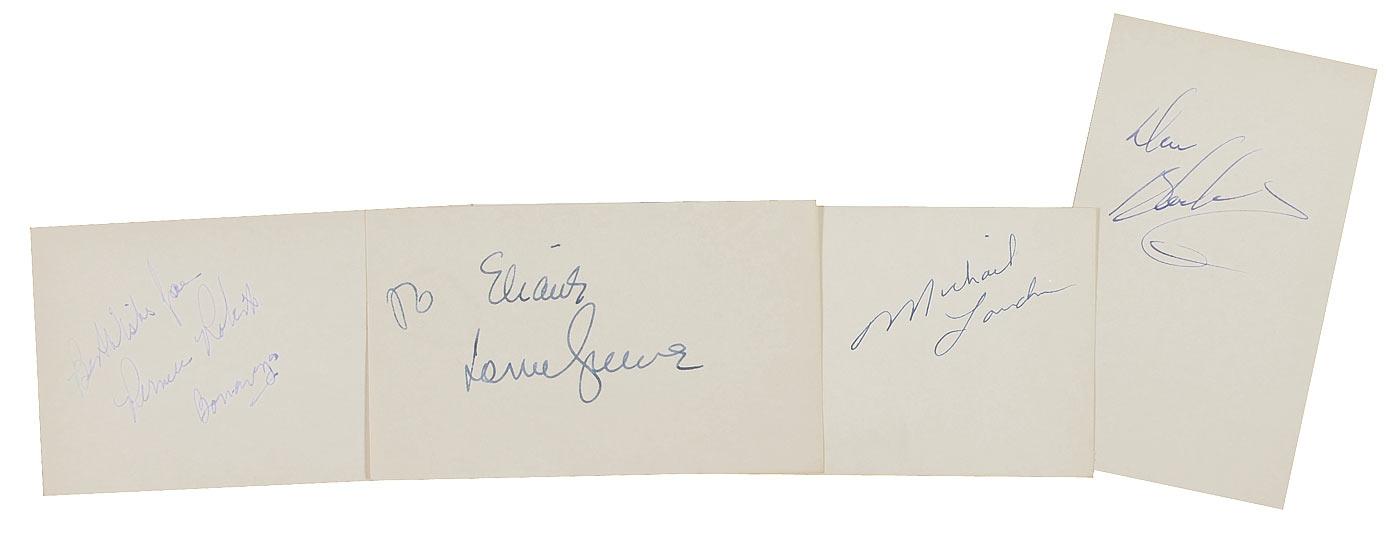 Best Wishes from
Pernell Roberts
Bonanza
To Eliantz
Lorne Greene
Michael
Landon
Dan
Blocker